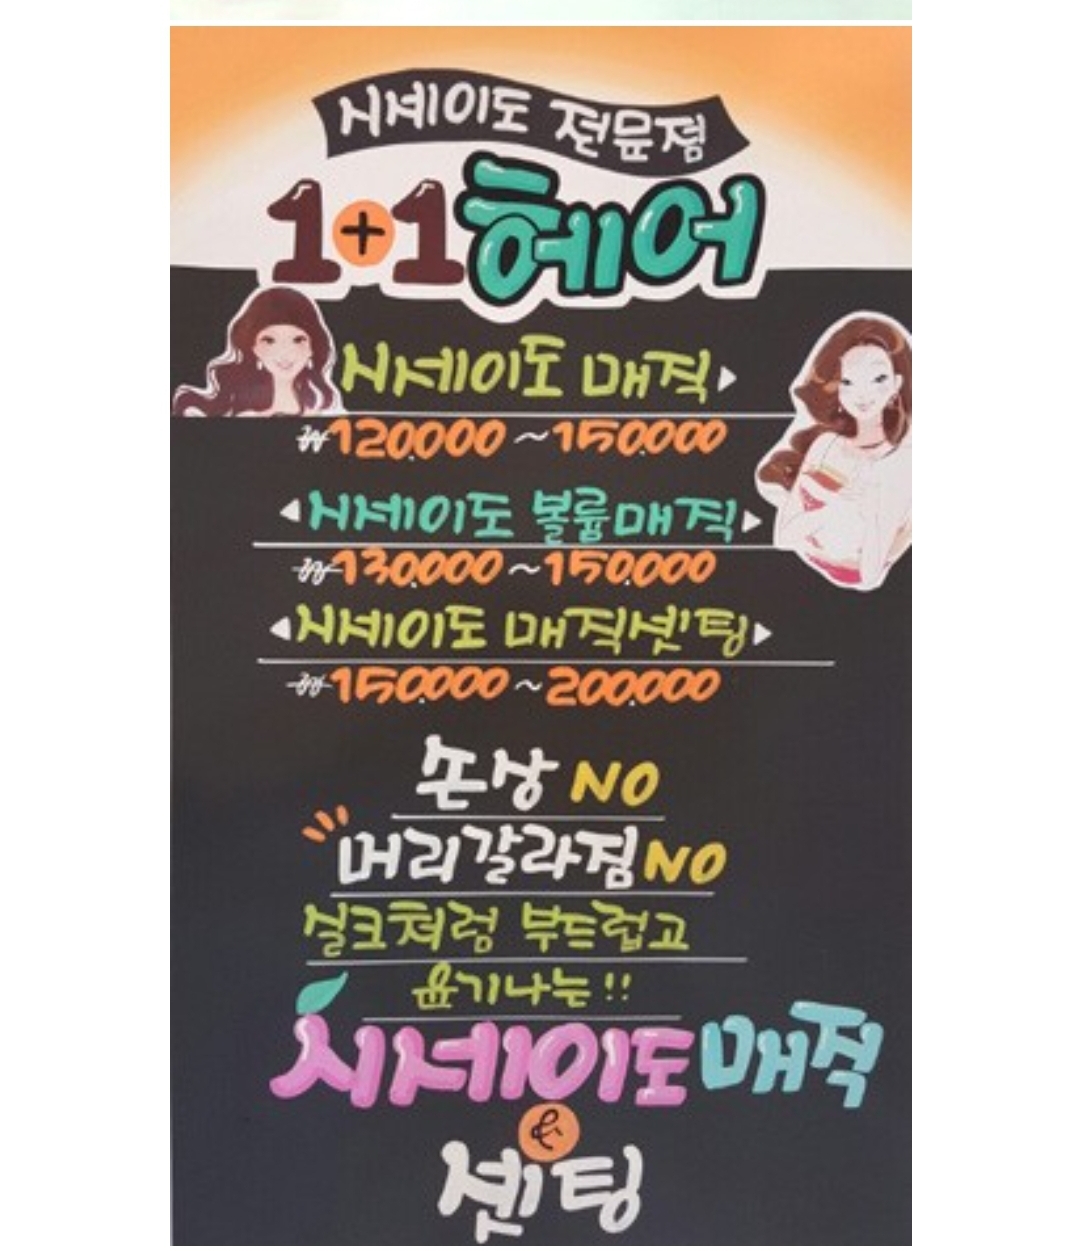 시세이도 전문점
1+1헤어
시세이도 매직▶
₩120,000~150,000
◀시세이도 볼륨매직▶
₩130,000~150,000
◀시세이도 매직셋팅▶
₩150,000~200,000
손상 NO
머리갈라짐 NO
실크처럼 부드럽고
윤기나는!!
시세이도매직
&
셋팅